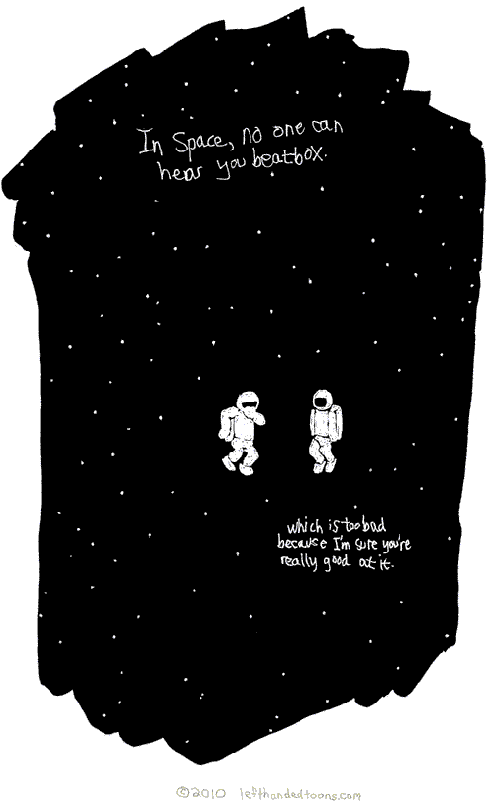 In Space, no one can
hear you beatbox.
which is too bad
because I'm sure you're
really good at it.
©2010 lefthandedtoons.com